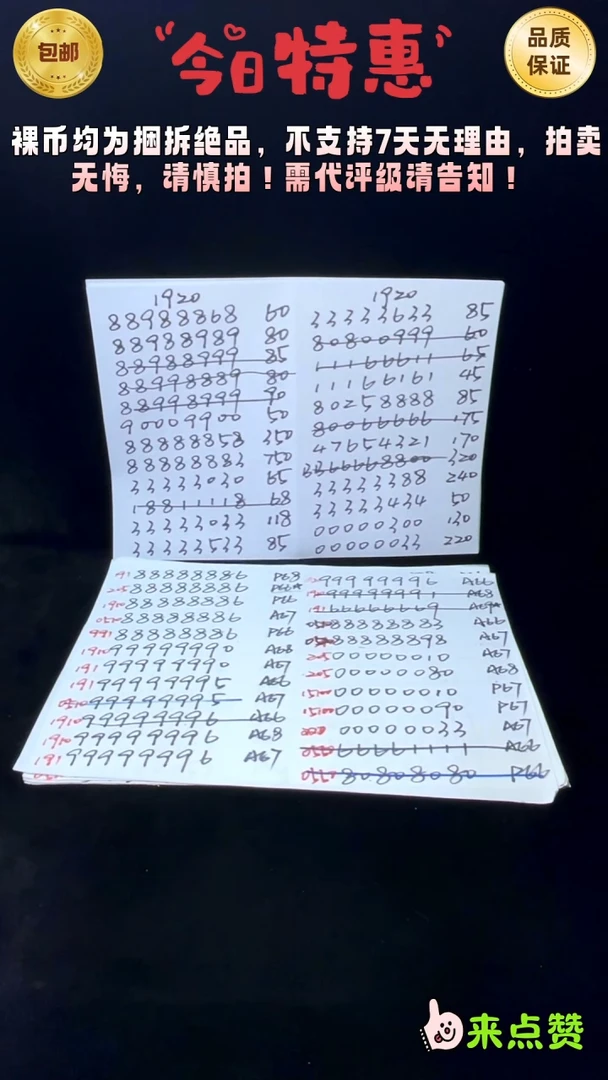 包邮
“今日特惠”
品质
保证
裸币均为捆拆绝品，不支持7天无理由，拍卖
无悔，请慎拍！需代评级请告知！
1920
88988868 60
88988989 80
88988999 85
88998889 80
88998999 90
90009900 50
88888858 350
88888883 750
33333030 65
18811118 68
33333033 118
33333533 85
1920
33333633 85
80800999 60
11166611 65
11166161 45
80258888 85
80066666 175
47654321 170
320
33333388 240
33333434 50
00000300 130
00000033 220
191 88888886 P68
205 88888886 P66★
1910 88888886 P66
0510 88888886 A67
991 88888886 P66
1910 99999990 A68
191 99999990 A67
191 99999995 A66
0510 99999995 A67
1910 99999996 A66
1910 99999996 A68
191 99999996 A67
99999996 A66
99999991 A68
191 66666669
88888883 A66
88888898 A67
205 00000010 A67
205 00000080 A68
1510 00000010 P67
1510 00000090 P67
00000033 A67
0510 66661111 A66
0510 80808080 P66
来点赞